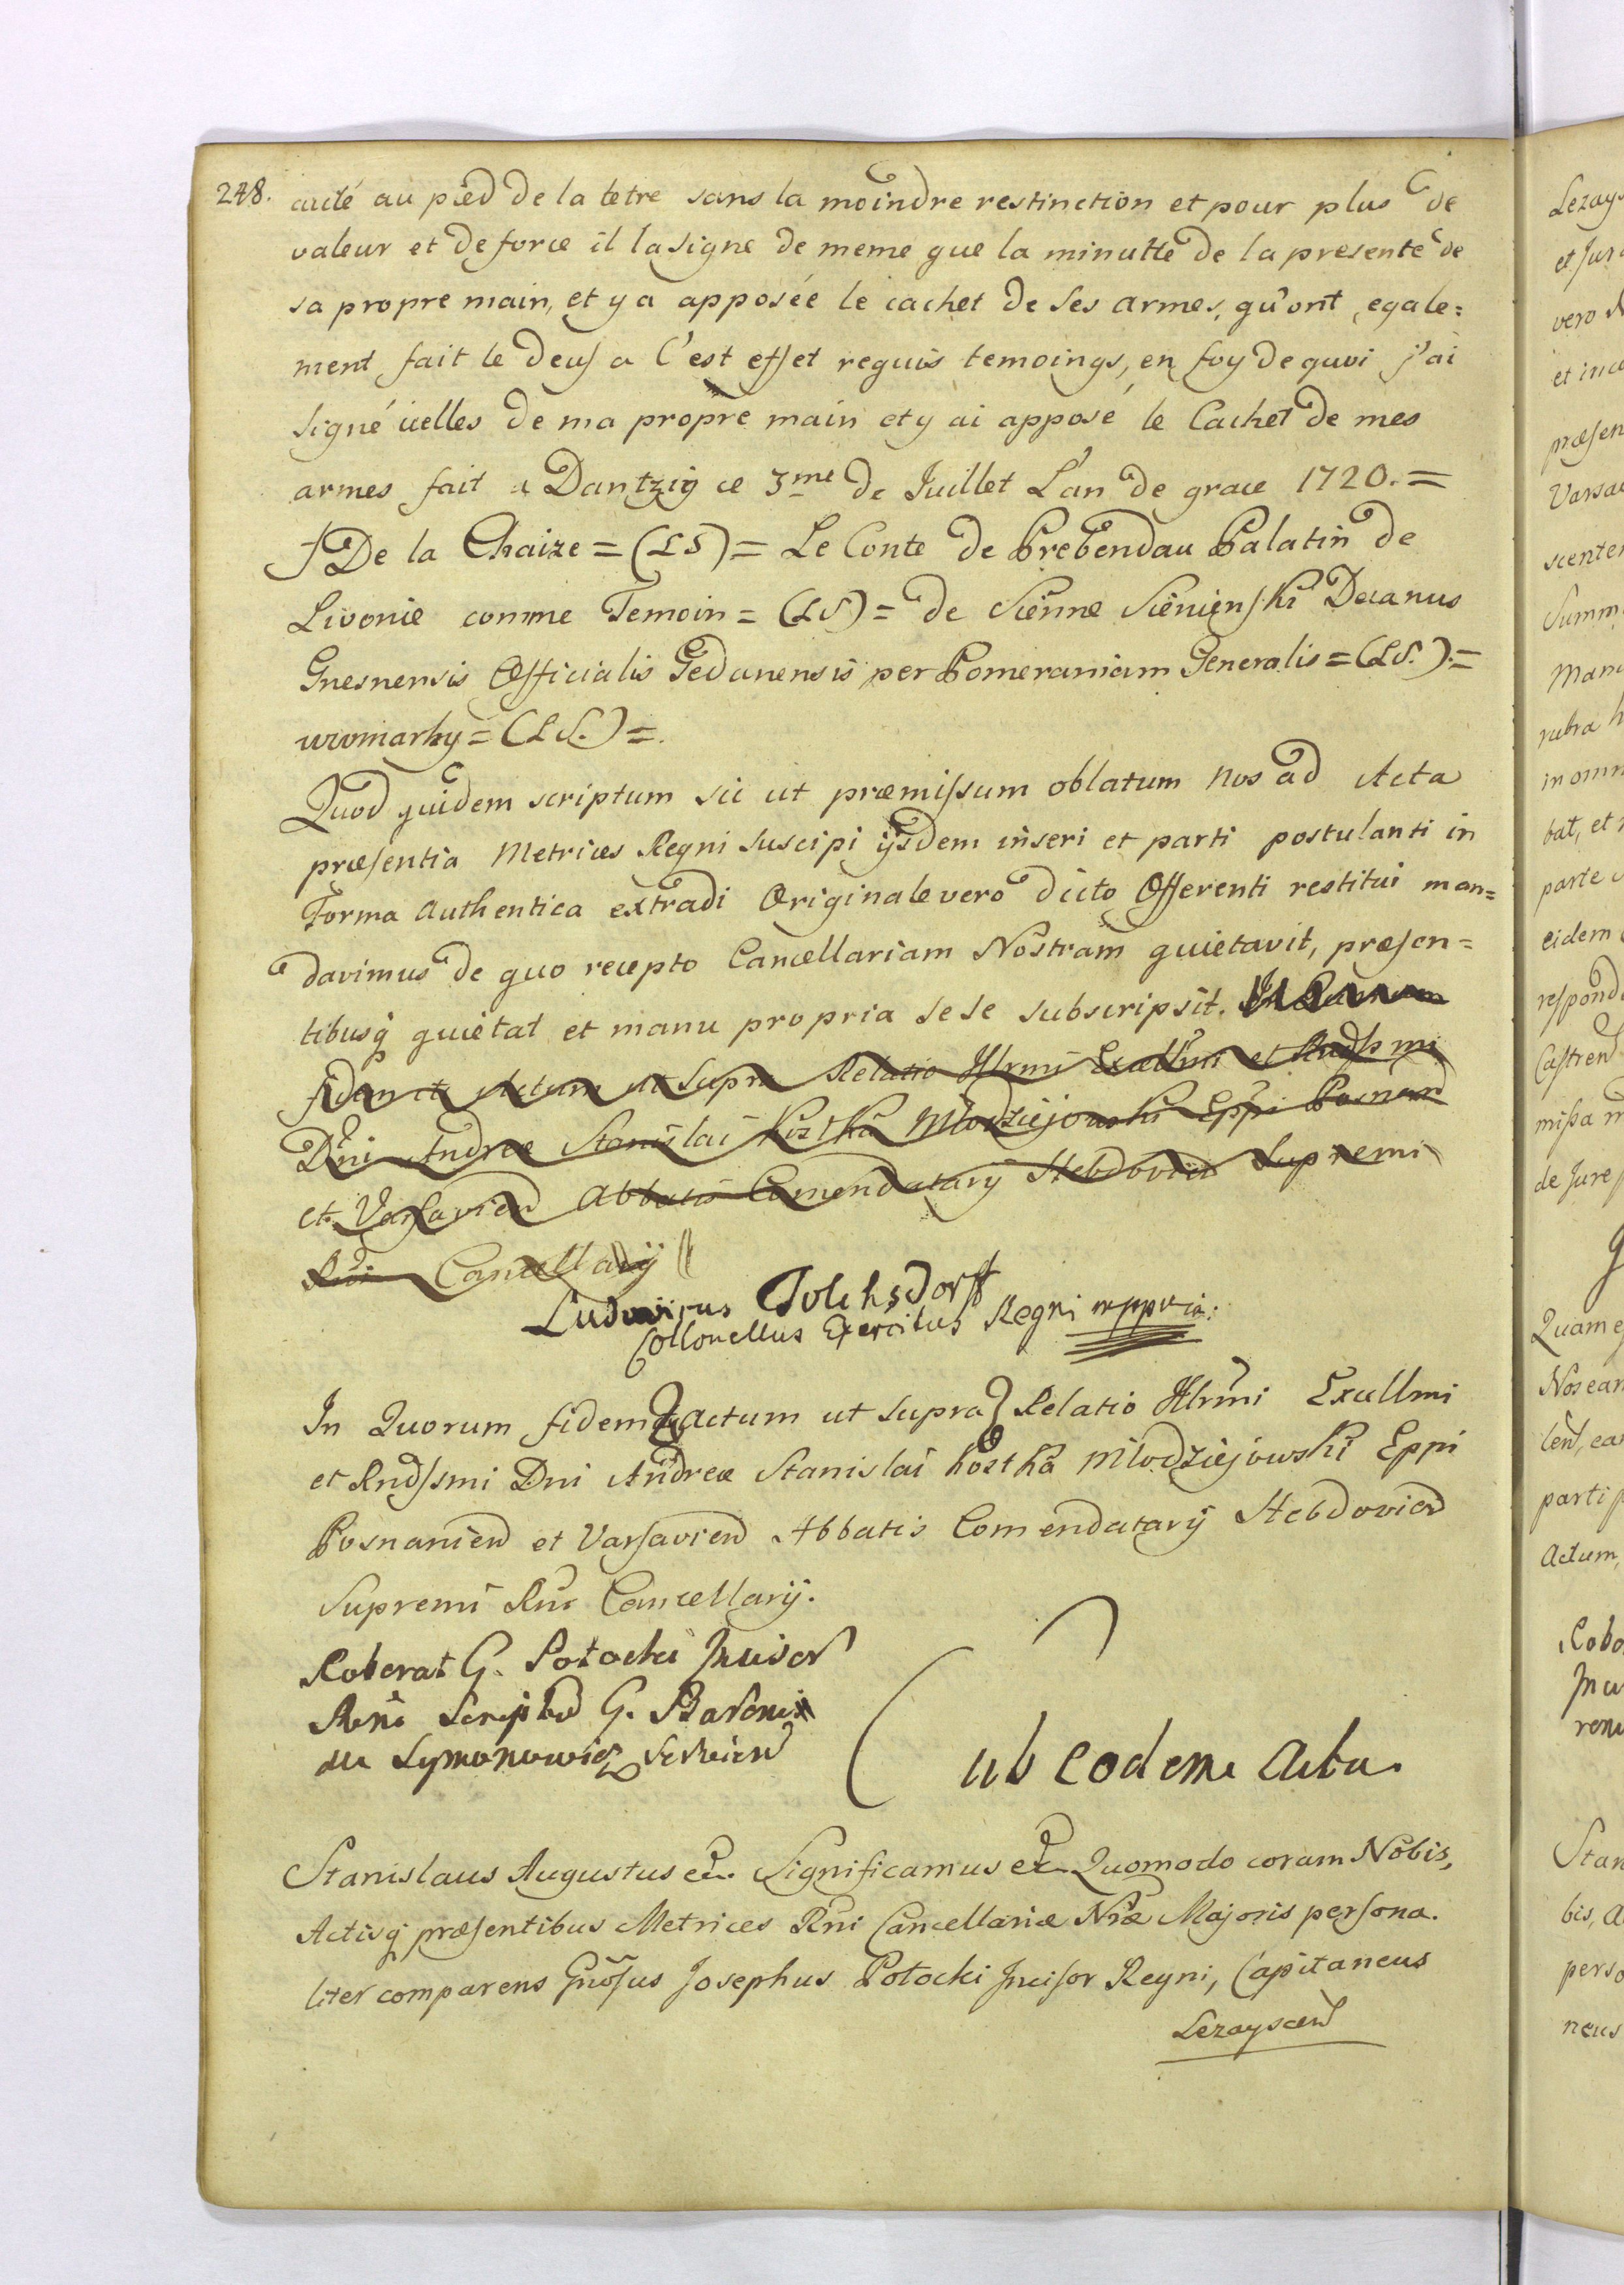 248.
cuté au pied de la letre sans la moindre restinction et pour plus de
valeur et de force il la signe de meme que la minutte de la presente de
sa propre main, et y a apposée le cachet de ses armes, qu'ont egale=
ment fait le deuſ a C'est effet requis temoings, en foy de quoi j'ai
signé icelles de ma propre main et y ai apposé le Cachet de mes
armes fait a Dantzig ce 3me de Juillet L'an de grace 1720. =
De la Chaize = (LS) = Le Conte de Prebendau Palatin de
Livonie comme Temoin = (LS) = de Sienne Sienienſki Decanus
Gnesnensis Officialis Gedanensis per Pomeraniam Generalis = (LS.) =
= (LS.) =.
Quod quidem scriptum sic ut præmiſsum oblatum Nos ad Acta
præſentia Metrices Regni suscipi ijsdem inseri et parti postulanti in
Forma Authentica extradi Originale vero dicto Offerenti restitui man=
davimus de quo recepto Cancellariam Nostram quietavit, præſen=
tibusq quietat et manu propria sese subscripsit. In Quorum
fidem et Actum ut supra Relatio Illrmi Excellmi et Rndſsmi
Dni Andreæ Stanislai Kostka Młodziejowski Eppi Posnan
et Varſavien Abbatis Comendatarij Hebdovien Supremi
Rni Cancellarij
Ludovicus Golchsdorff
Collonellus Exercitus Regni mppria:
In Quorum fidem Actum ut supra Relatio Illrmi Excellmi
et Rndſsmi Dni Andreæ Stanislai Kostka Młodziejowski Eppi
Posnanien et Varſavien Abbatis Comendatarij Hebdovien
Supremi Rni Cancellarij.
Roberat G. Potocki Incisor
Rni G.
Szymonowicz
Sub Eodem Actu.
Stanislaus Augustus etc. Significamus etc Quomodo coram Nobis,
Actisq præſentibus Metrices Rni Cancellariæ Nræ Majoris perſona.
liter comparens Gnoſus Josephus Potocki Inciſor Regni, Capitaneus
Lezayscen
Lezays
et Jur
vero
et inca
præſen
Varsa
scenten
Summ
Man
rubra
in omn
bat, et
parte
eidem
reſpond
Caſtren
miſsa
de Jure
Quam
Nos ea
len, ea
parti
Actum,
Robo
Stan
bis, A
perso
neus